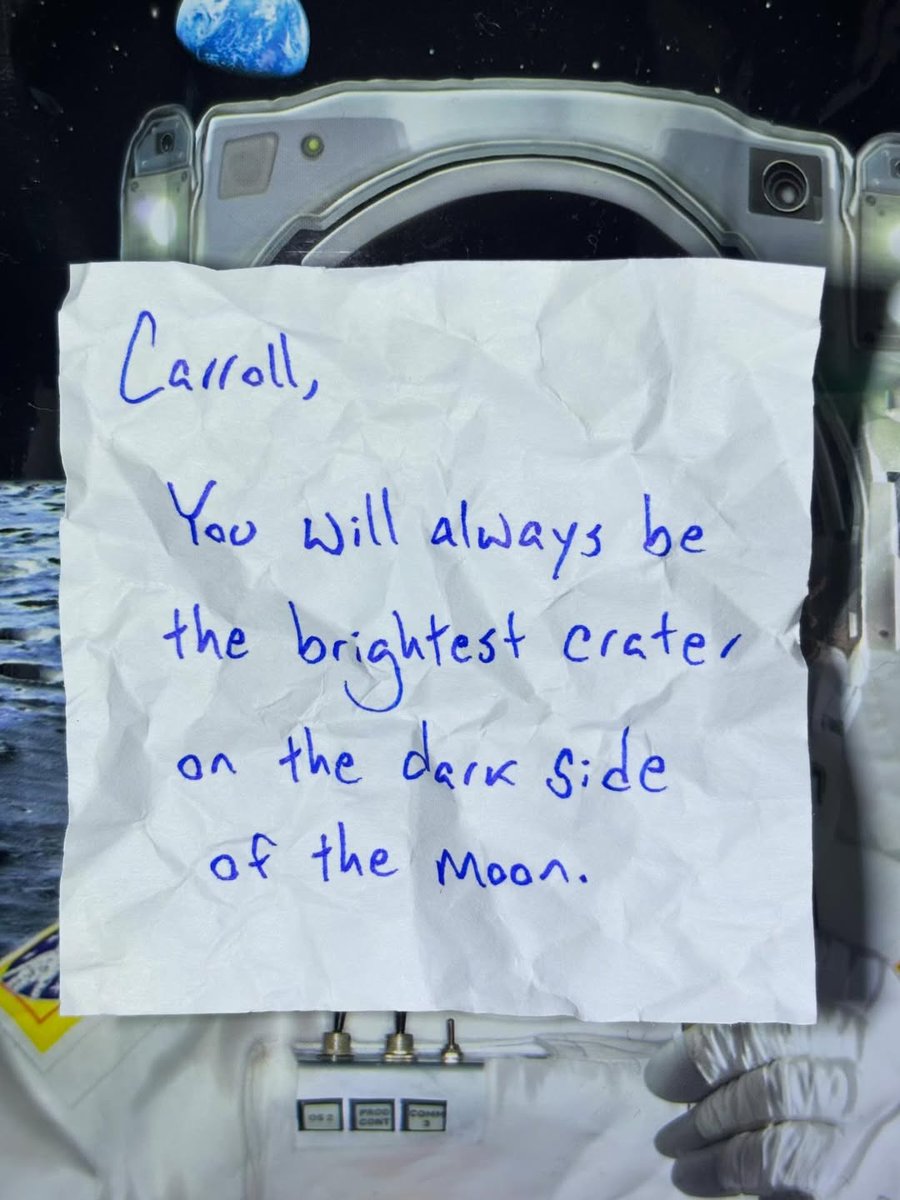 Carroll,
You will always be
the brightest crater
on the dark side
of the Moon.
OS 2
PROD CONT
COMM 3